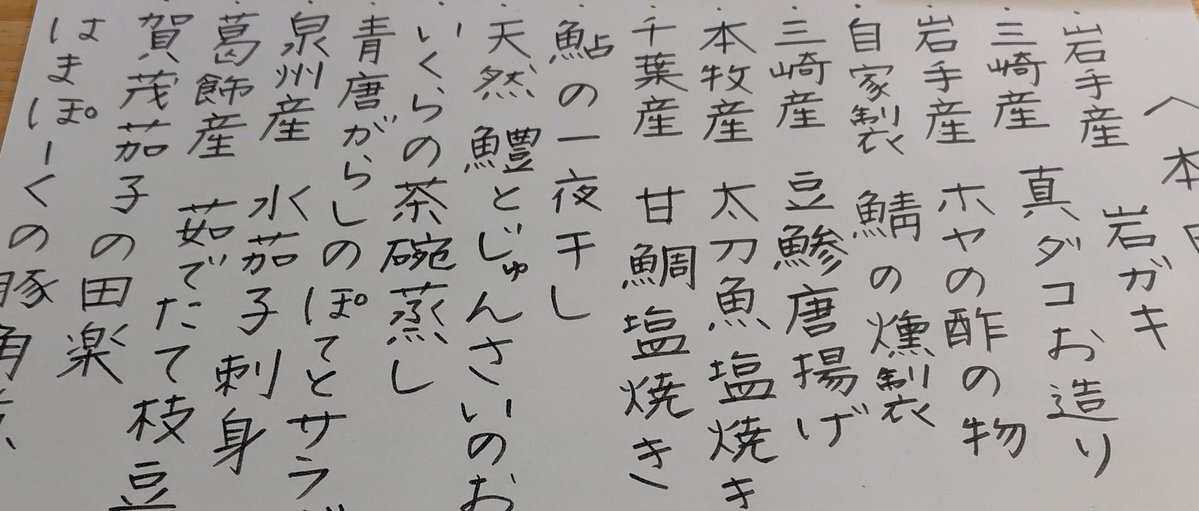 〈本
・岩手産 岩ガキ
・三崎産 真ダコお造り
・岩手産 ホヤの酢の物
・自家製 鯖の燻製
・三崎産 豆鯵唐揚げ
・本牧産 太刀魚塩焼き
・千葉産 甘鯛塩焼き
・鮎の一夜干し
・天然鱧とじゅんさいのお
・いくらの茶碗蒸し
・青唐がらしのぽてとサラ
・泉州産 水茄子刺身
・葛飾産 茹でたて枝豆
賀茂茄子の田楽
はまぽーくの豚角